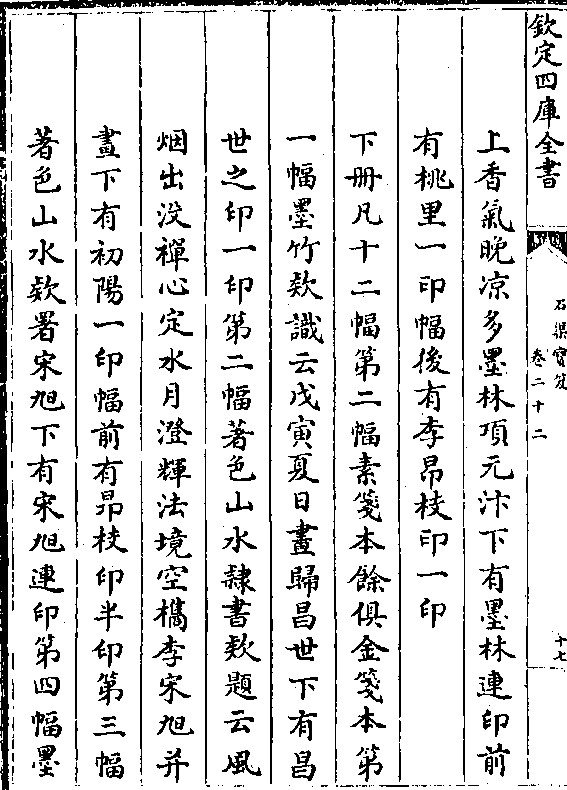 欽定四庫全書
石渠寳笈
卷二十二
十七
上香氣晚凉多墨林項元汴下有墨林連印前
有桃里一印幅後有李昂枝印一印
下册凡十二幅第二幅素箋本餘俱金箋本第
一幅墨竹欵識云戊寅夏日畫歸昌世下有昌
世之印一印第二幅著色山水隷書欵題云風
烟出没禪心定水月澄輝法境空檇李宋旭并
畫下有初陽一印幅前有昻枝印半印第三幅
著色山水欵署宋旭下有宋旭連印第四幅墨